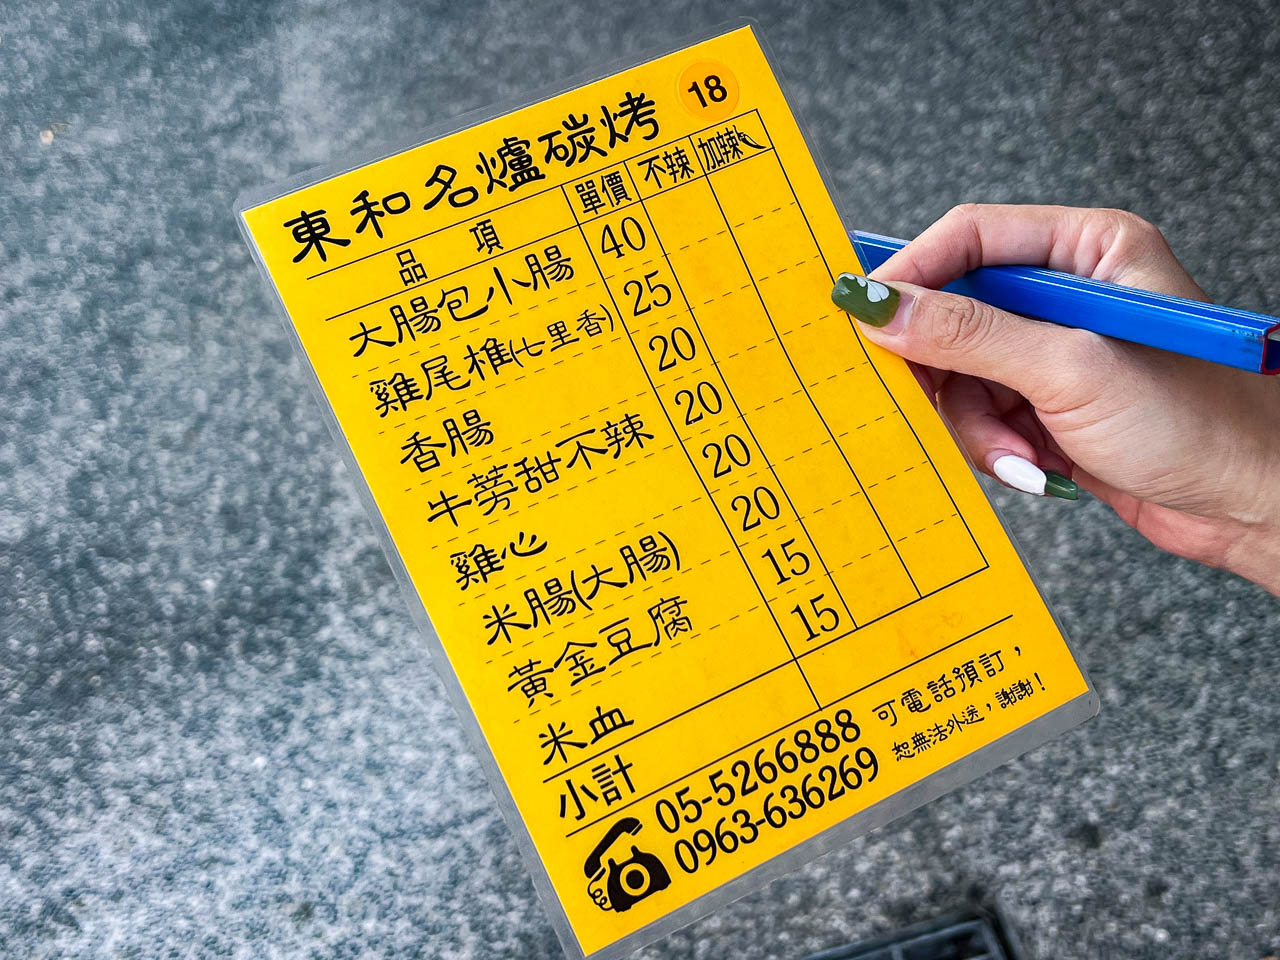 東和名爐碳烤 18
品項 單價 不辣 加辣
大腸包小腸 40
雞尾椎(七里香) 25
香腸 20
牛蒡甜不辣 20
雞心 20
米腸(大腸) 20
黃金豆腐 15
米血 15
小計
05-5266888 可電話預訂，
0963-636269 恕無法外送，謝謝！